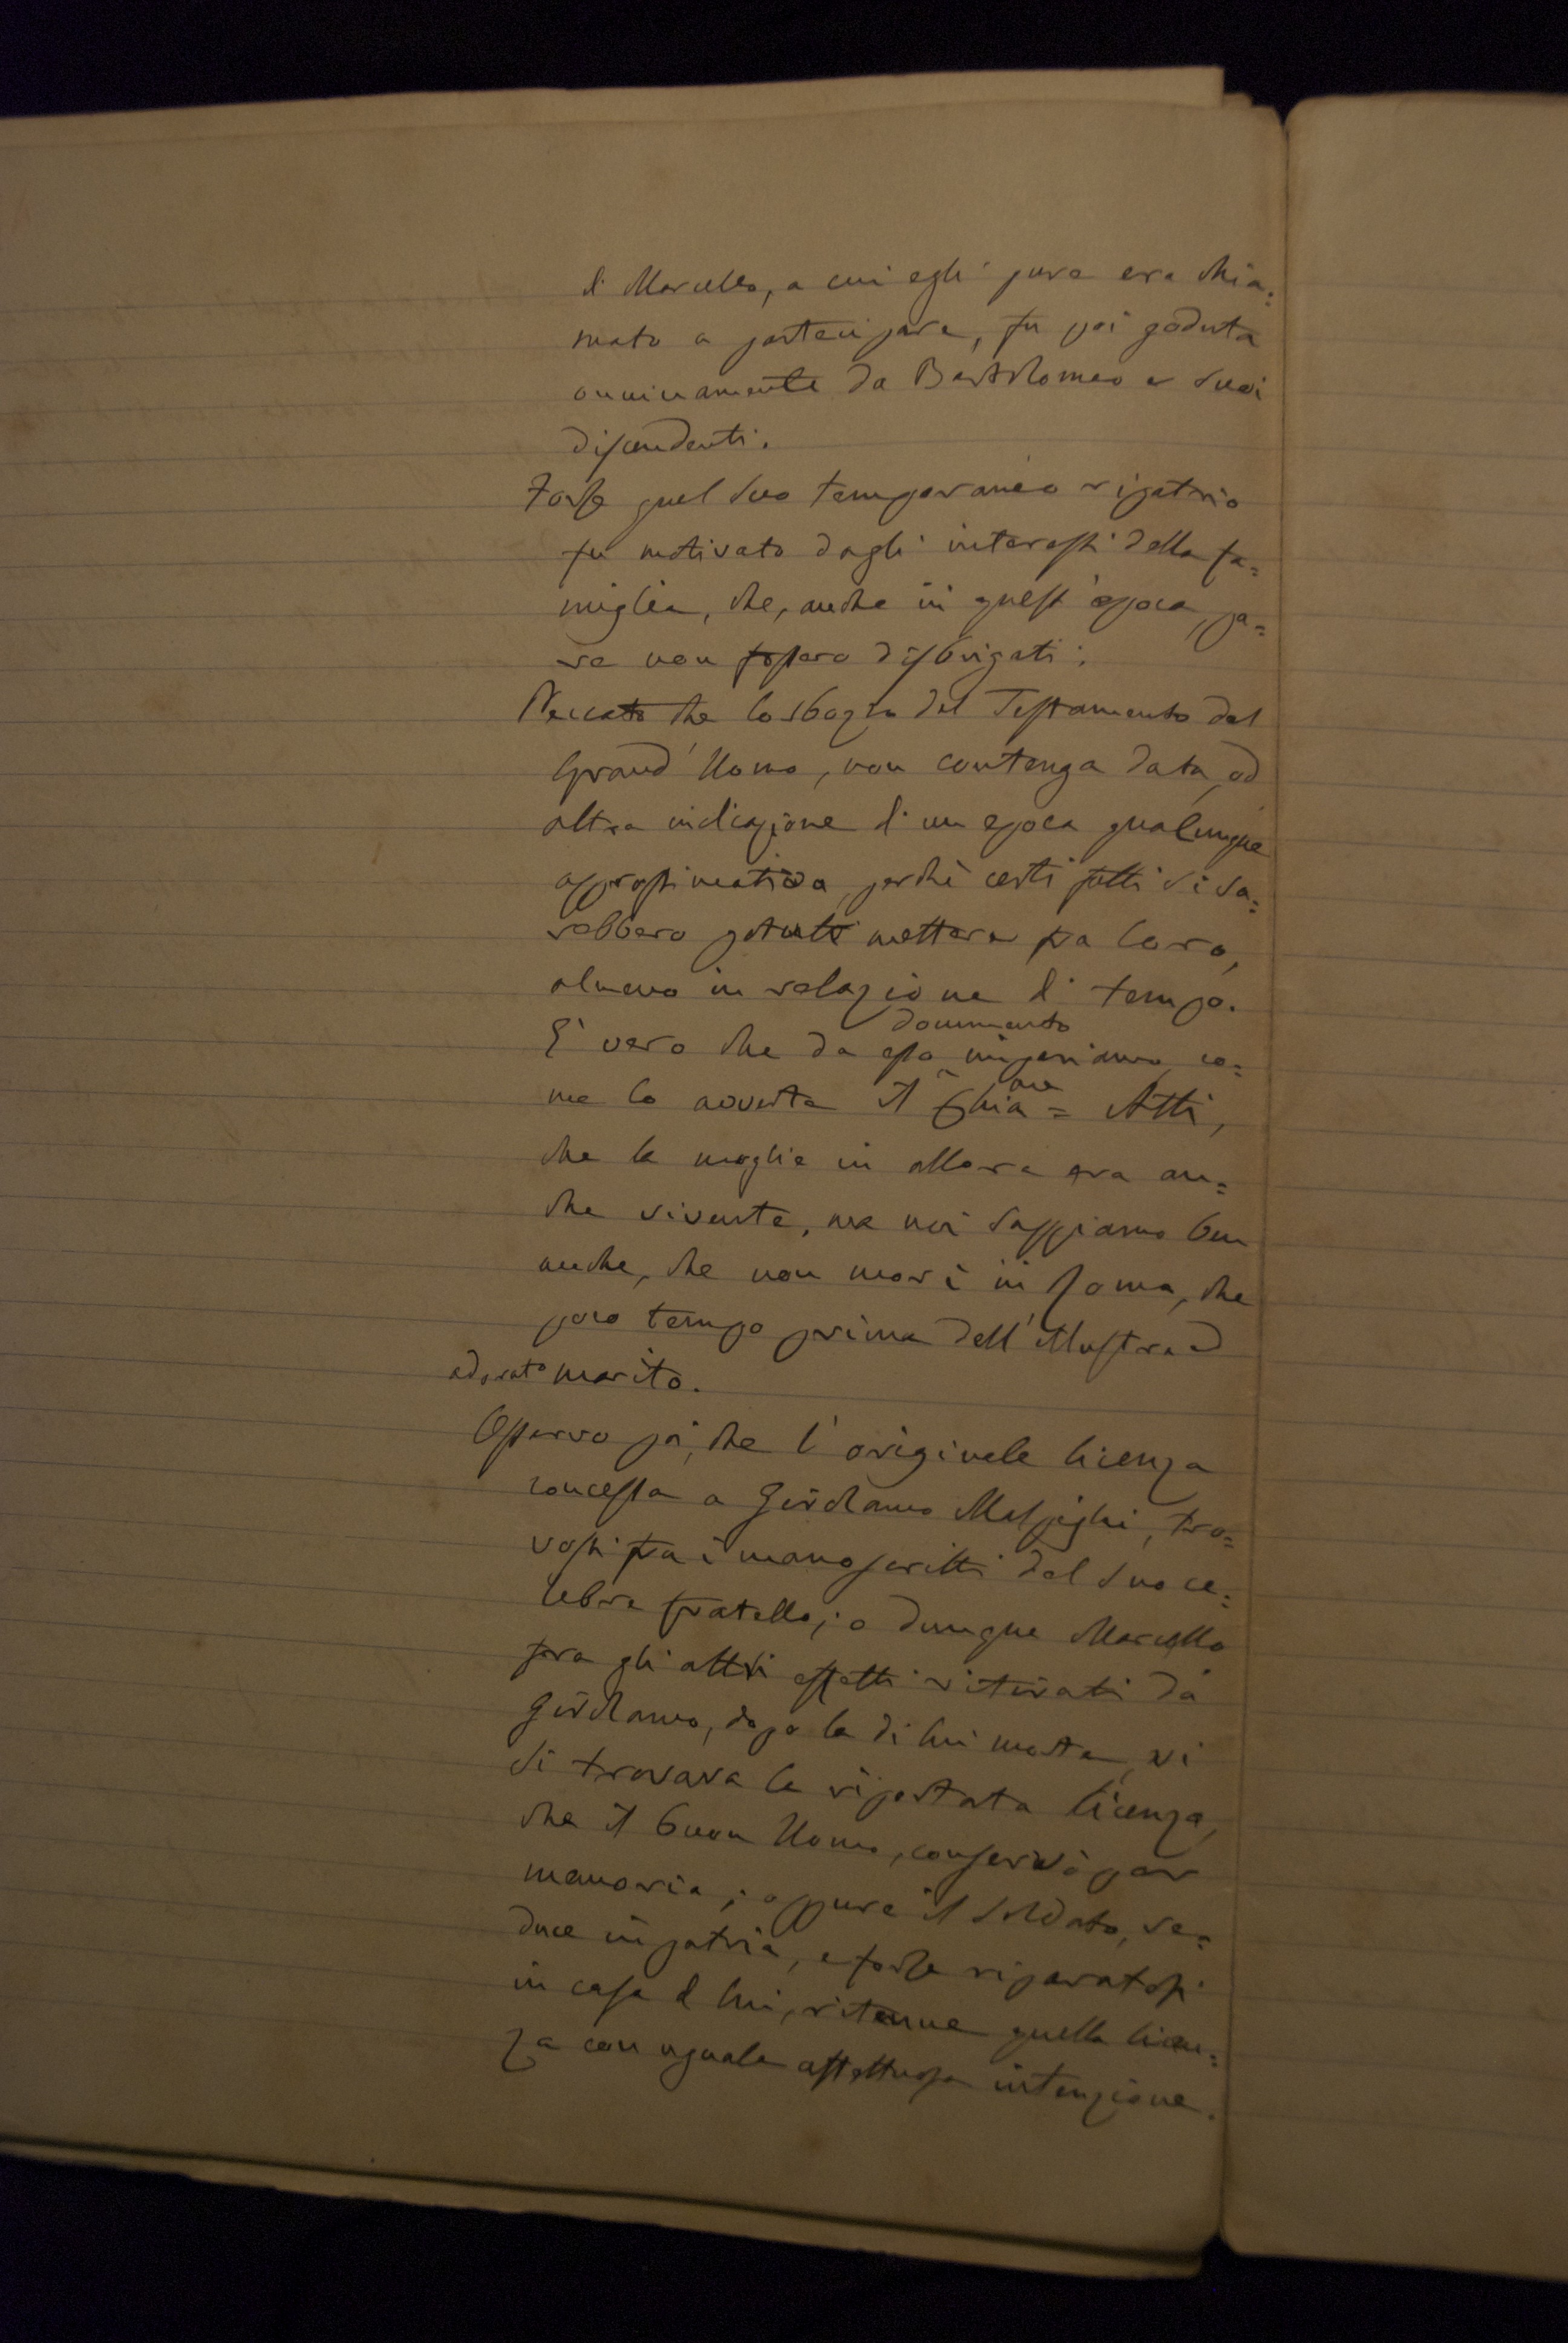 di Marcello, a cui egli pure era chia=
mato a partecipare, fu poi goduta
onninamente da Bartolomeo e suoi
discendenti.
Forse quel suo temporaneo ripatrio
fu motivato dagli interessi della fa=
miglia, che, anche in quest'epoca, pa=
re non fossero disbrigati.
Peccato che lo sbozzo del Testamento del
Grand'Uomo, non contenga data, od
altra indicazione di un epoca qualunque
approssimativa, perchè certi fatti si sa=
rebbero potuti mettere fra loro,
almeno in relazione di tempo.
E' vero che da esso documento
co=
me lo avverte il Chia.me Atti,
che la moglie in allora era an=
che vivente, ma noi sappiamo ben
anche, che non morì in Roma, che
poco tempo prima dell'illustre ed
adorato marito.
Osservo poi, che l'originale licenza
concessa a Girolamo Malpighi, tro=
vasi fra i manoscritti del suo ce=
lebre fratello; o dunque Marcello
fra gli altri effetti ritirati da
Girolamo, dopo la di lui morte, vi
si trovava la riportata licenza,
che il buon Uomo, conservò per
memoria; oppure il soldato, re=
duce in patria, e forse riparatosi
in casa di lui, ritenne quella licen=
za con uguale affettuosa intenzione.